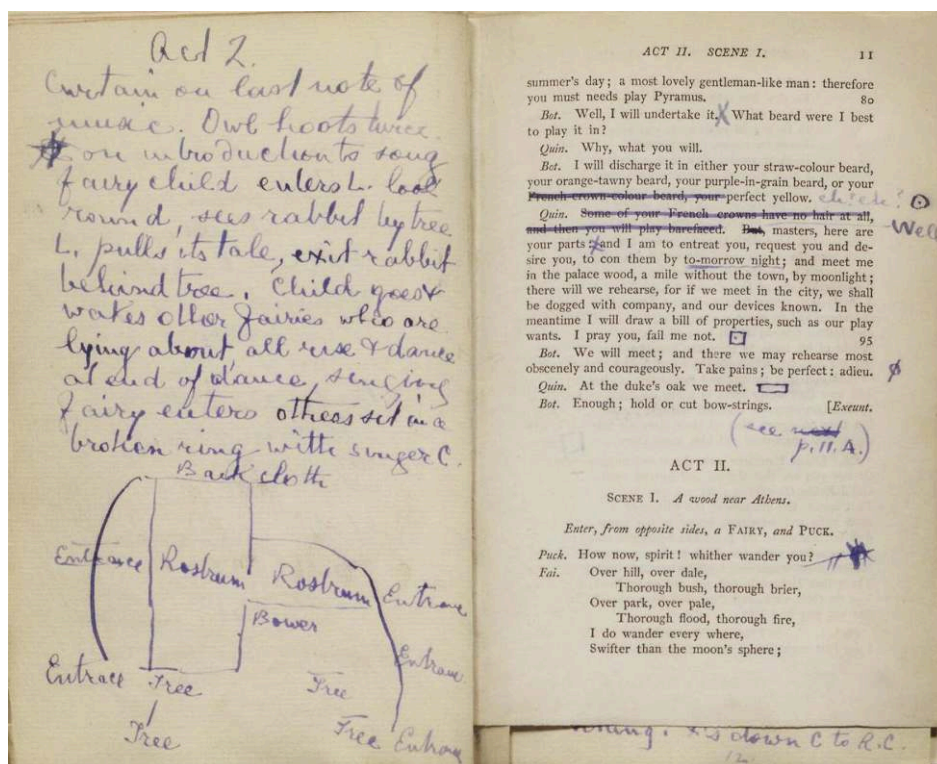 Act 2.
Curtain on last note of
music. Owl hoots twice.
on introduction to song
fairy child enters L. look
round, sees rabbit by tree
L. pulls its tale, exit rabbit
behind tree. Child goes &
wakes other fairies who are
lying about all rise & dance
at end of dance, singing
fairy enters others sit in a
broken ring with singer C.
Back cloth
Entrance Rostrum Rostrum Entrance
Bower
Entrance
Entrace Tree Tree
Tree Tree Entrance
ACT II. SCENE I. 11
summer's day; a most lovely gentleman-like man: therefore
you must needs play Pyramus. 80
Bot. Well, I will undertake it. What beard were I best
to play it in?
Quin. Why, what you will.
Bot. I will discharge it in either your straw-colour beard,
your orange-tawny beard, your purple-in-grain beard, or your
French-crown-colour beard, your perfect yellow. eh? eh?
Quin. Some of your French crowns have no hair at all,
and then you will play barefaced. But, masters, here are -Well
your parts: and I am to entreat you, request you and de-
sire you, to con them by to-morrow night; and meet me
in the palace wood, a mile without the town, by moonlight;
there will we rehearse, for if we meet in the city, we shall
be dogged with company, and our devices known. In the
meantime I will draw a bill of properties, such as our play
wants. I pray you, fail me not. 95
Bot. We will meet; and there we may rehearse most
obscenely and courageously. Take pains; be perfect: adieu.
Quin. At the duke's oak we meet.
Bot. Enough; hold or cut bow-strings. [Exeunt.
(see next
p. 11. A.)
ACT II.
SCENE I. A wood near Athens.
Enter, from opposite sides, a FAIRY, and PUCK.
Puck. How now, spirit! whither wander you?
Fai. Over hill, over dale,
Thorough bush, thorough brier,
Over park, over pale,
Thorough flood, thorough fire,
I do wander every where,
Swifter than the moon's sphere;
down C to R.C.